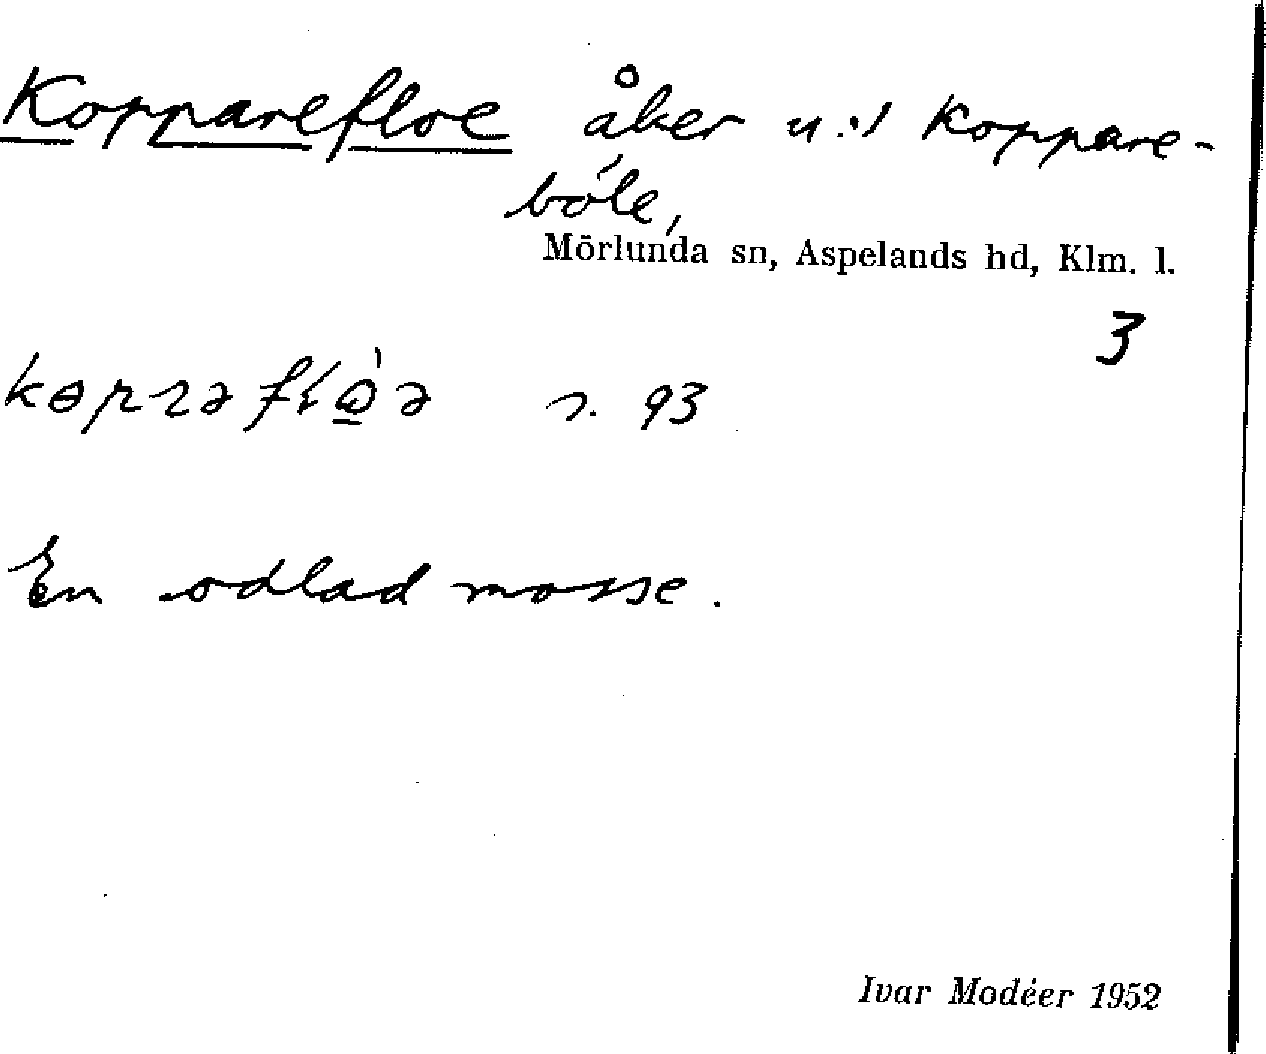 Kopparefloe åker u.t Koppare-
böle,
Mörlunda sn, Aspelands hd, Klm. l.
3
s. 93
En odlad mosse.
Ivar Modéer 1952